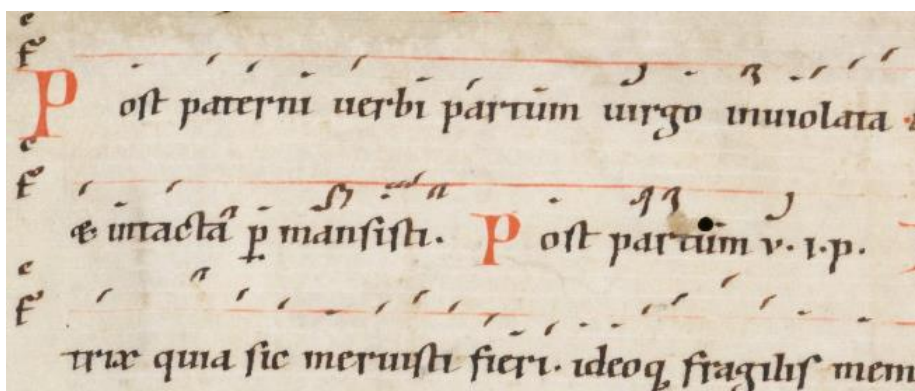 c
f
Post paterni uerbi partum uirgo inuiolata
c
f
& intacta permansisti. Post partum v. i. p.
c
f
trix quia sic meruisti fieri. ideoq; fragilis mem